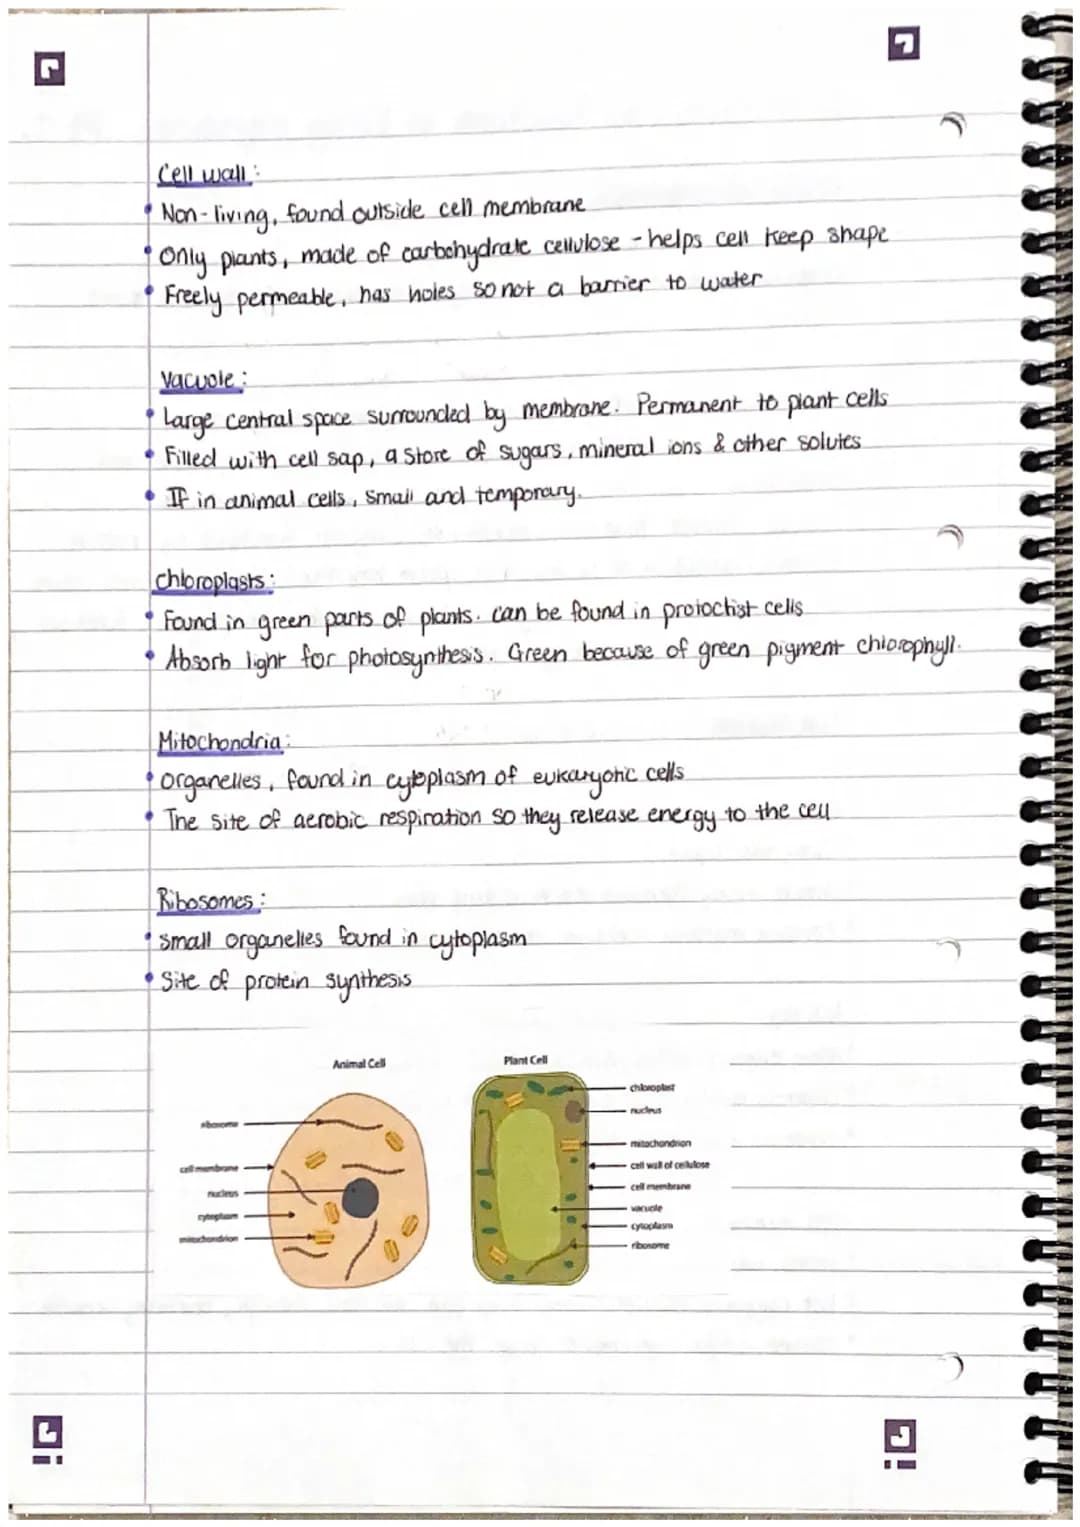 Cell wall:
• Non-living, found outside cell membrane
• Only plants, made of carbohydrate cellulose - helps cell keep shape
• Freely permeable, has holes so not a barrier to water
Vacuole:
• Large central space surrounded by membrane. Permanent to plant cells
• Filled with cell sap, a store of sugars, mineral ions & other solutes
• If in animal cells, small and temporary.
Chloroplasts:
• Found in green parts of plants. can be found in protoctist cells
• Absorb light for photosynthesis. Green because of green pigment chlorophyll.
Mitochondria:
• organelles, found in cytoplasm of eukaryotic cells
• The site of aerobic respiration so they release energy to the cell
Ribosomes:
• small organelles found in cytoplasm
• Site of protein synthesis
Animal Cell
ribosome
cell membrane
nucleus
cytoplasm
mitochondrion
Plant Cell
chloroplast
nucleus
mitochondrion
cell wall of cellulose
cell membrane
vacuole
cytoplasm
ribosome